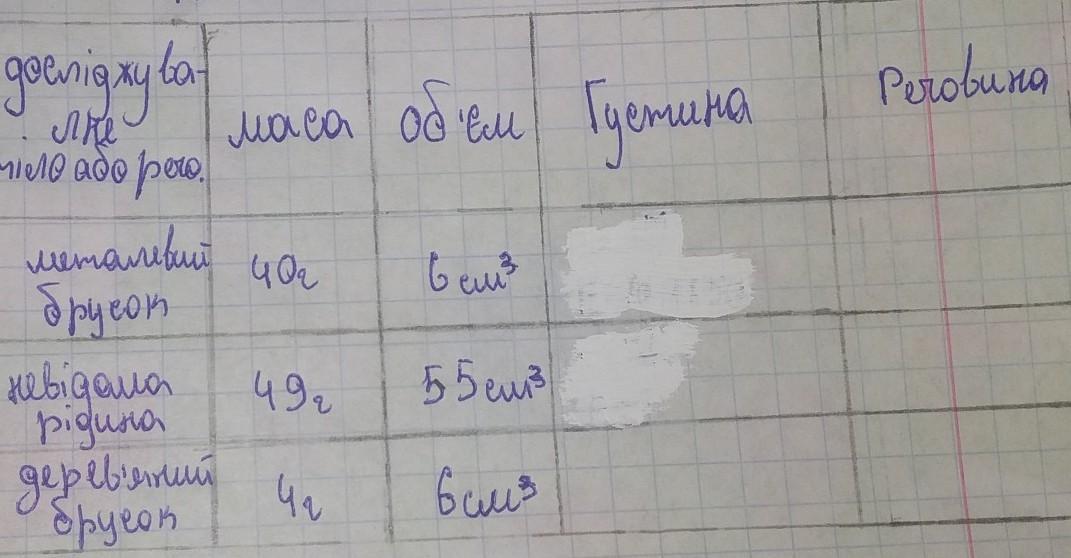 досліджува-
лне
тіло або речо.
маса
об'єм
Густина
Речовина
металевий
брусок
40г
6 см³
невідома
рідина
49г
55см³
дерев'яний
брусок
4г
6см³